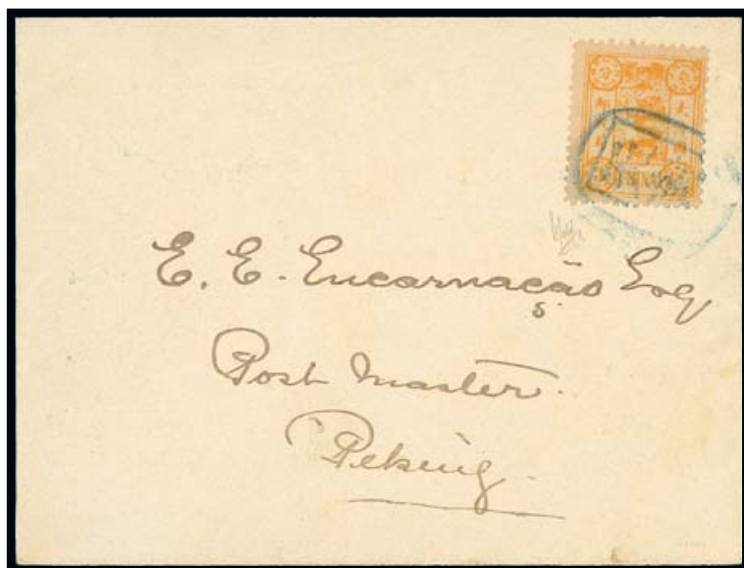 E. E. Encarnação Esq
Post Master.
Peking.